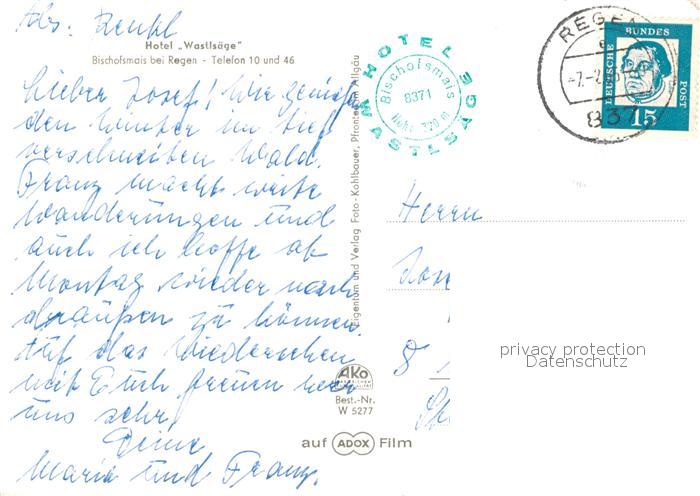 Abs. Renkl
Hotel „Wastlsäge"
Bischofsmais bei Regen - Telefon 10 und 46
Lieber Josef! Wir genieß
den Winter im tief
verschneiten Wald.
Franz macht weite
Wanderungen und
auch ich hoffe ab
Montag wieder nach
draußen zu können.
Auf das Wiedersehen
mit Euch freuen wir
uns sehr
Deine
Maria und Franz.
Eigentum und Verlag Foto-Kohlbauer, Pfronten im Allgäu
AKO
Best.-Nr.
W 5277
auf ADOX Film
HOTEL WASTLSÄGE
Bischofsmais
8371
REGEN
837
DEUTSCHE BUNDES POST
15
Herrn
Jose
8
privacy protection
Datenschutz